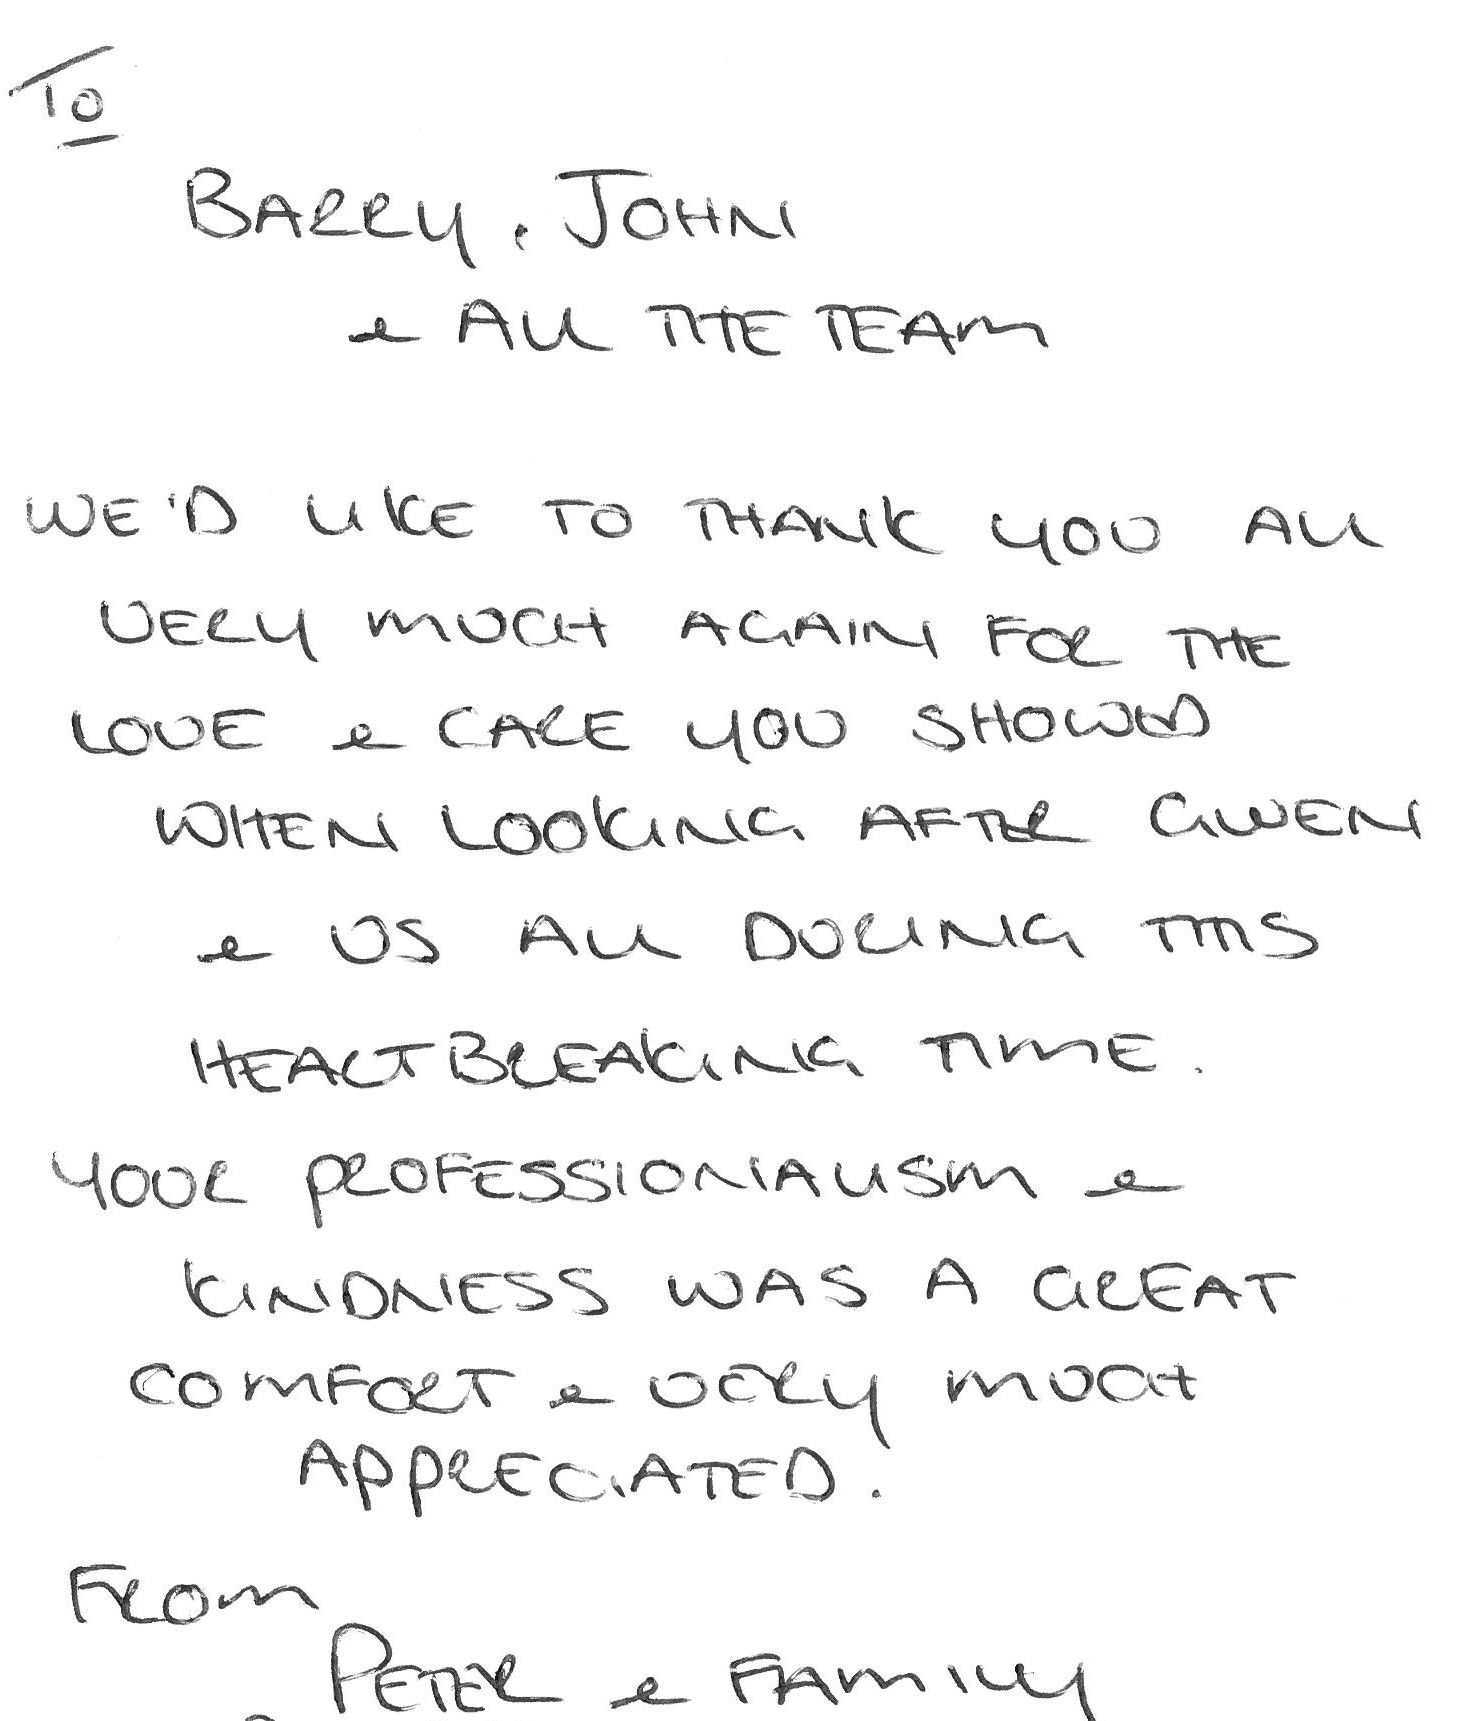 To
BARRY, JOHN
& ALL THE TEAM
WE'D LIKE TO THANK YOU ALL
VERY MUCH AGAIN FOR THE
LOVE & CARE YOU SHOWED
WHEN LOOKING AFTER GWEN
& US ALL DURING THIS
HEARTBREAKING TIME.
YOUR PROFESSIONALISM &
KINDNESS WAS A GREAT
COMFORT & VERY MUCH
APPRECIATED.
FROM
PETER & FAMILY